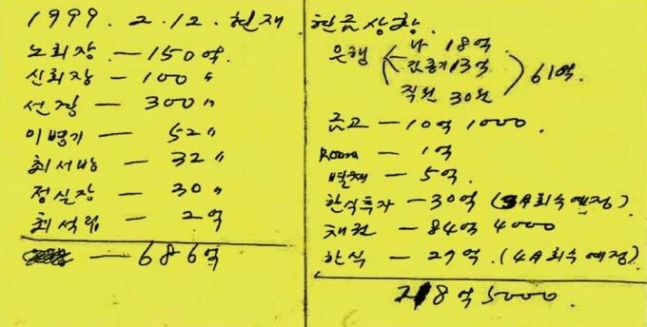 1999. 2. 12. 현재
노회장 — 150억.
신회장 — 100 〃
선장 — 300 〃
이병기 — 52 〃
최서방 — 32 〃
정실장 — 30 〃
최석립 — 2억
— 686억
현금상황.
나 18억.
은행 13억 61억.
직원 30
금고 — 10억 1000.
Room — 1억
별채 — 5억.
한식투자 — 30억 (3月회수예정)
채권 — 84억 4000
한식 — 27억. (4月회수예정)
218억 5000.